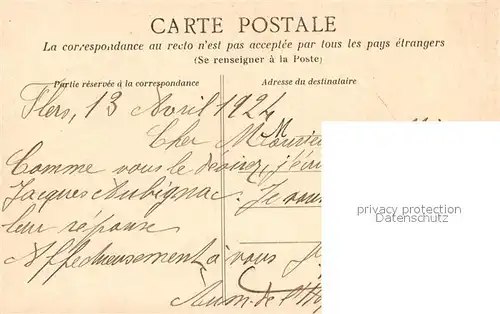 CARTE POSTALE
La correspondance au recto n'est pas acceptée par tous les pays étrangers
(Se renseigner à la Poste)
Partie réservée à la correspondance
Adresse du destinataire
Flers, 13 Avril 1924
Cher
Comme vous le désirez, j'écri
Jacques Aubignac. Je vous
leur réponse
Affectueusement à vous
Aum. de l'Hôp
privacy protection
Datenschutz